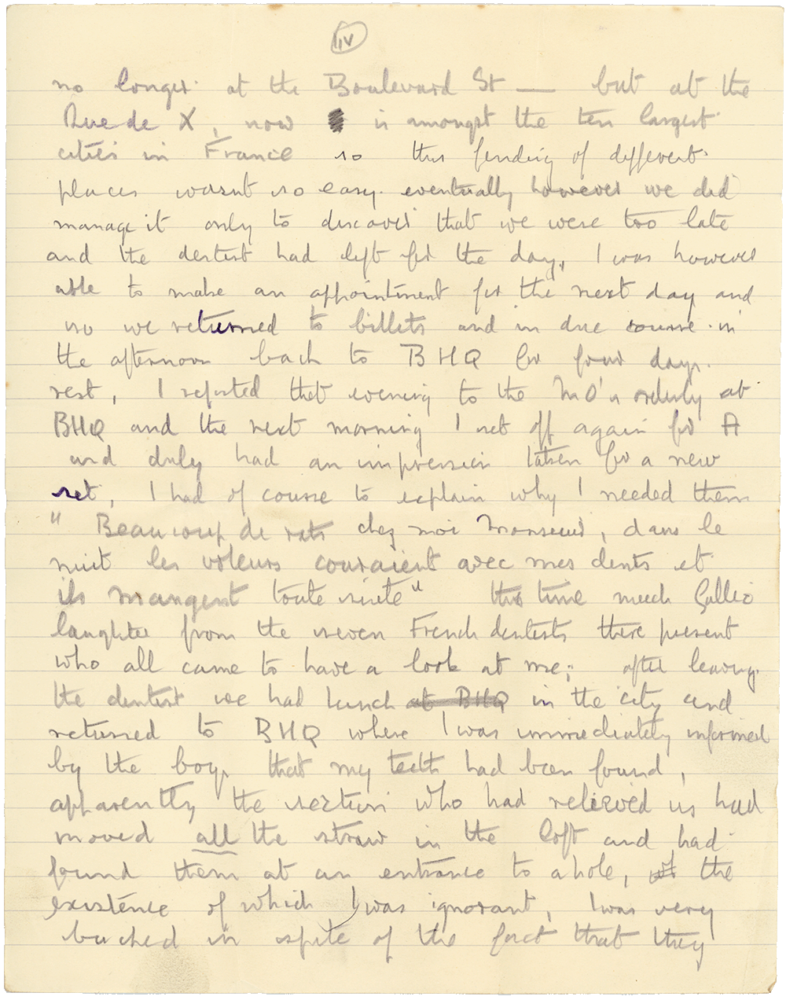 IV
no longer at the Boulevard St — but at the
Rue de X, now is amongst the ten largest
cities in France so this finding of different
places wasnt so easy. eventually however we did
manage it only to discover that we were too late
and the dentist had left for the day, I was however
able to make an appointment for the next day and
so we returned to billets and in due course in
the afternoon back to BHQ for four days
rest, I reported that evening to the MO's orderly at
BHQ and the next morning I set off again for A
and duly had an impression taken for a new
set, I had of course to explain why I needed them
" Beaucoup de rats chez moi Monsieur, dans le
nuit les voleurs couraient avec mes dents et
ils mangent toute suite" this time much Gallic
laughter from the seven French dentists there present
who all came to have a look at me; after leaving
the dentist we had lunch at BHQ in the city and
returned to BHQ where I was immediately informed
by the boys that my teeth had been found,
apparently the section who had relieved us had
moved all the straw in the loft and had
found them at an entrance to a hole, the
existence of which I was ignorant, I was very
bucked in spite of the fact that they